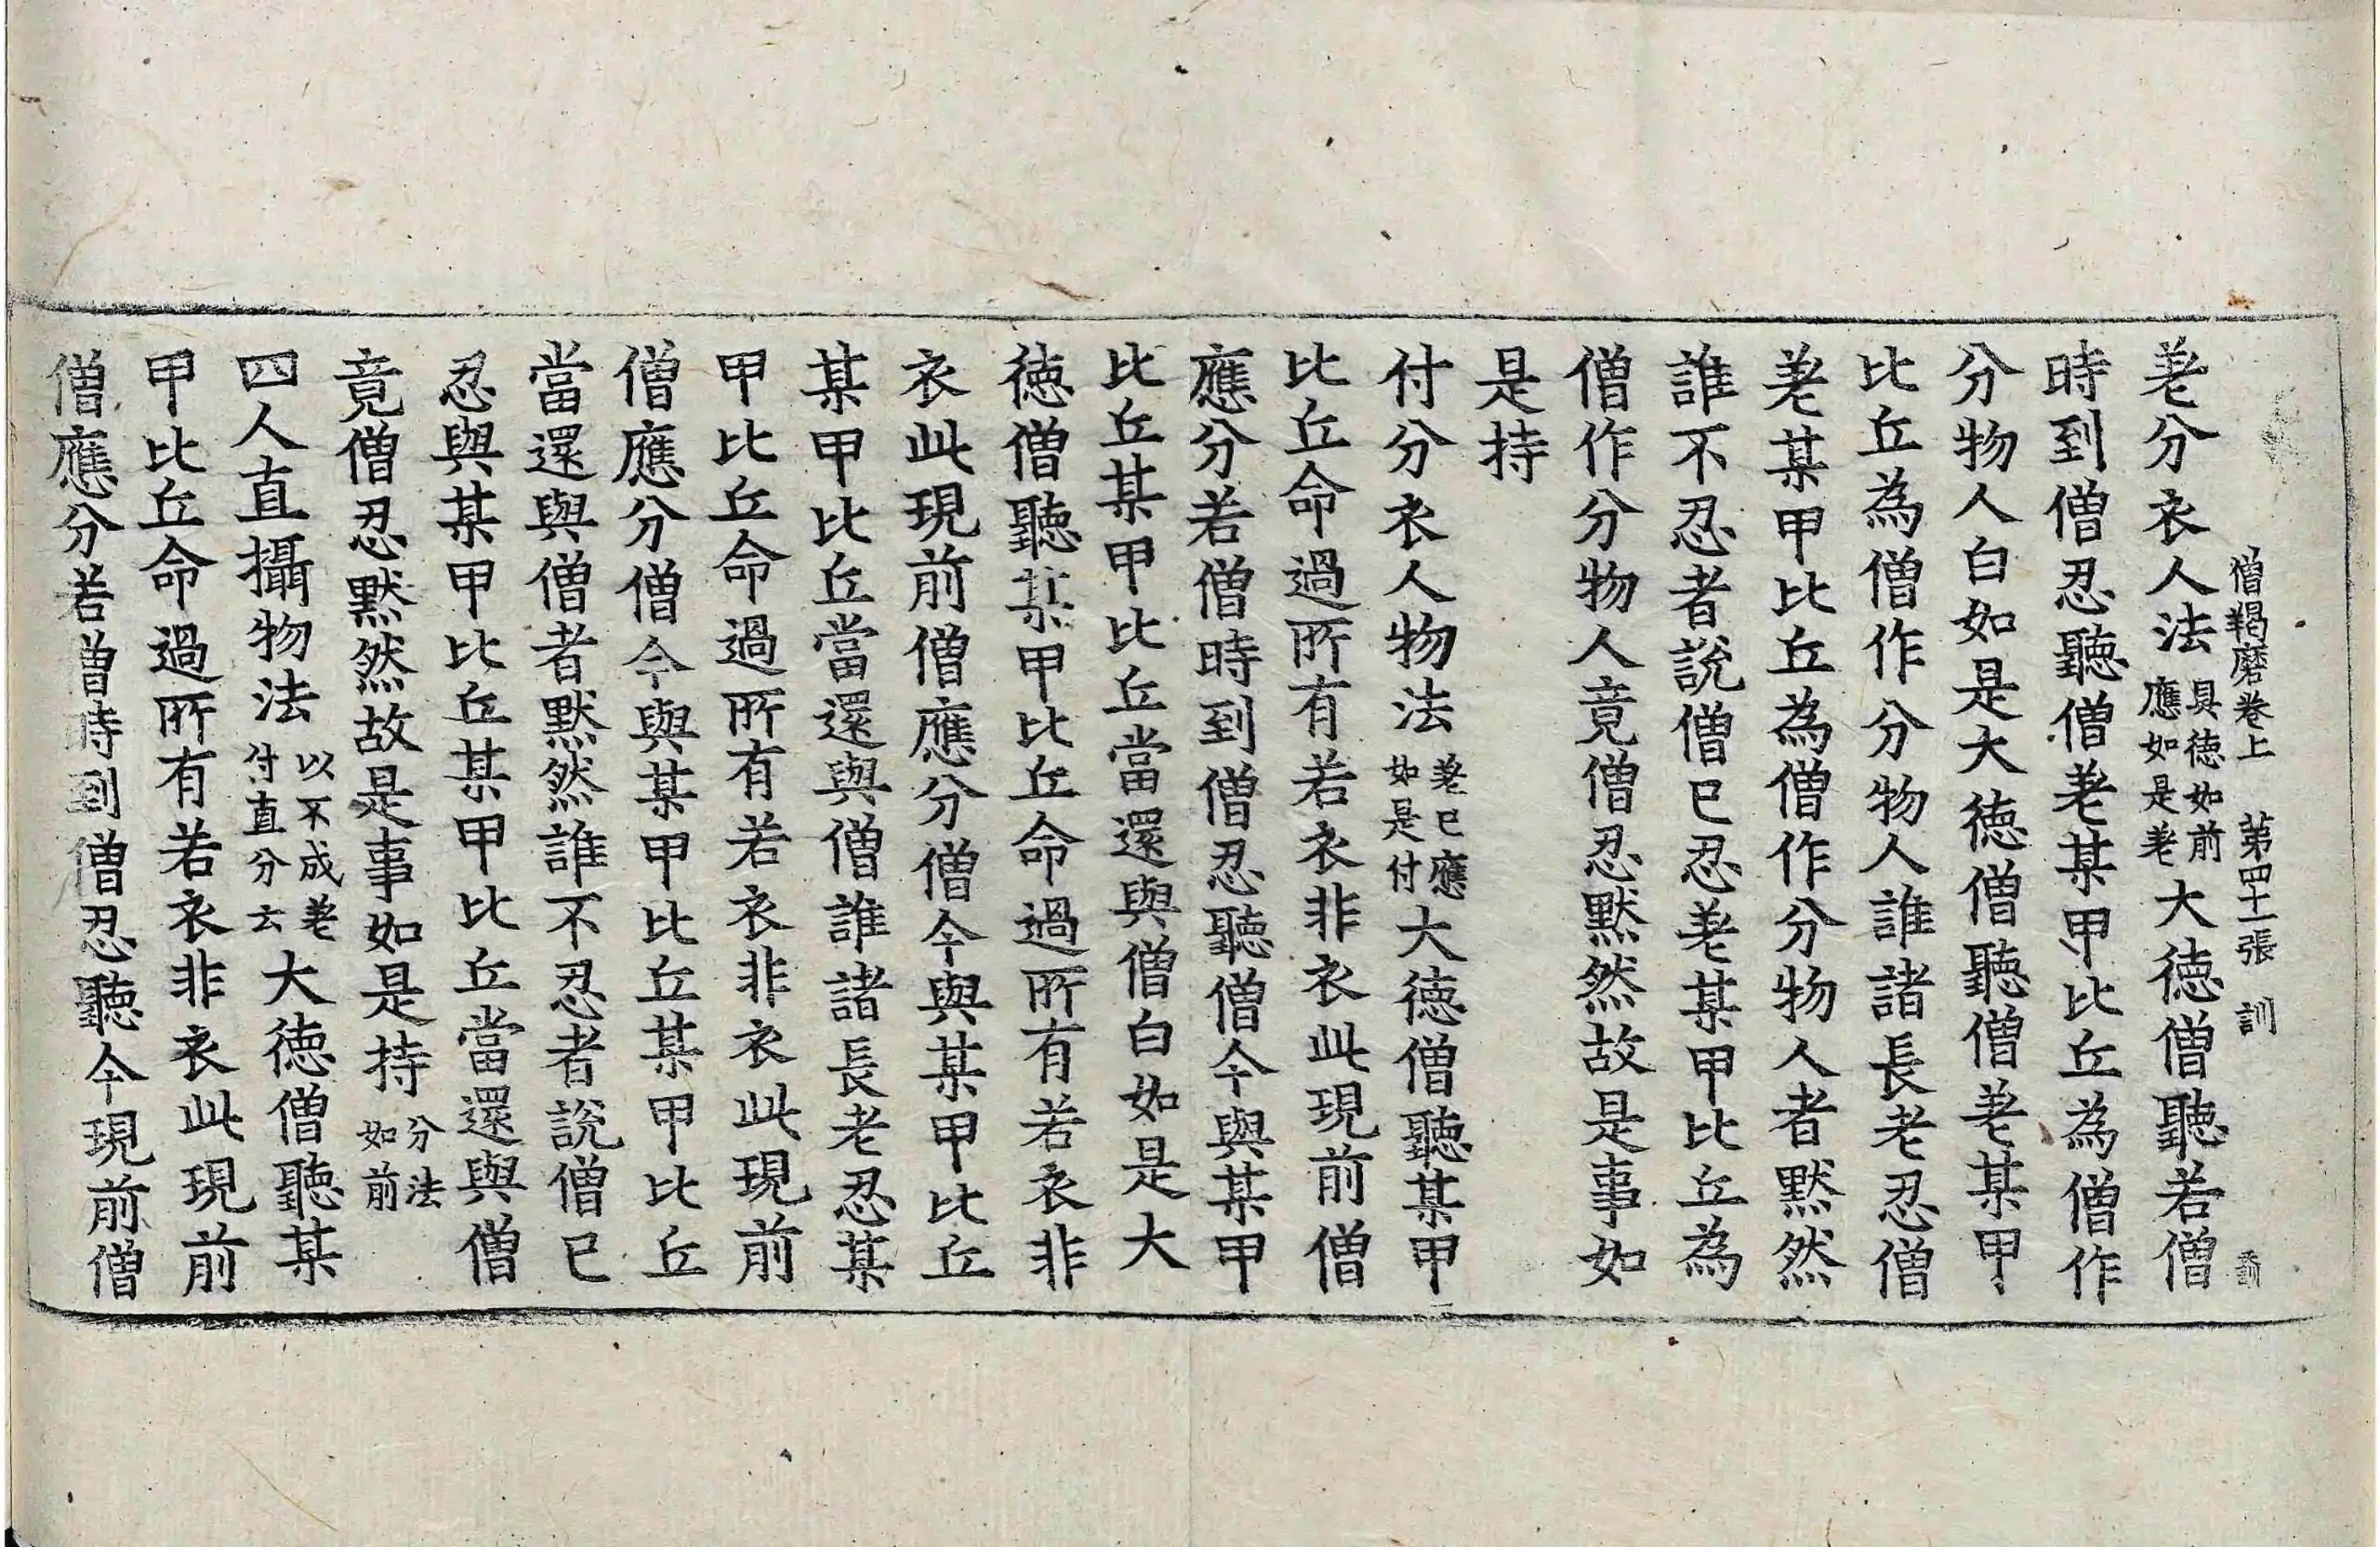 僧羯磨卷上 第四十一張 訓
差分衣人法具德如前應如是差大德僧聽若僧
時到僧忍聽僧差某甲比丘為僧作
分物人白如是大德僧聽僧差某甲
比丘為僧作分物人誰諸長老忍僧
差某甲比丘為僧作分物人者默然
誰不忍者說僧已忍差某甲比丘為
僧作分物人竟僧忍默然故是事如
是持
付分衣人物法差已應如是付大德僧聽某甲
比丘命過所有若衣非衣此現前僧
應分若僧時到僧忍聽僧今與某甲
比丘某甲比丘當還與僧白如是大
德僧聽某甲比丘命過所有若衣非
衣此現前僧應分僧今與某甲比丘
某甲比丘當還與僧誰諸長老忍某
甲比丘命過所有若衣非衣此現前
僧應分僧今與某甲比丘某甲比丘
當還與僧者默然誰不忍者說僧已
忍與某甲比丘某甲比丘當還與僧
竟僧忍默然故是事如是持分法如前
四人直攝物法以不成差付直分云大德僧聽某
甲比丘命過所有若衣非衣此現前
僧應分若僧時到僧忍聽今現前僧